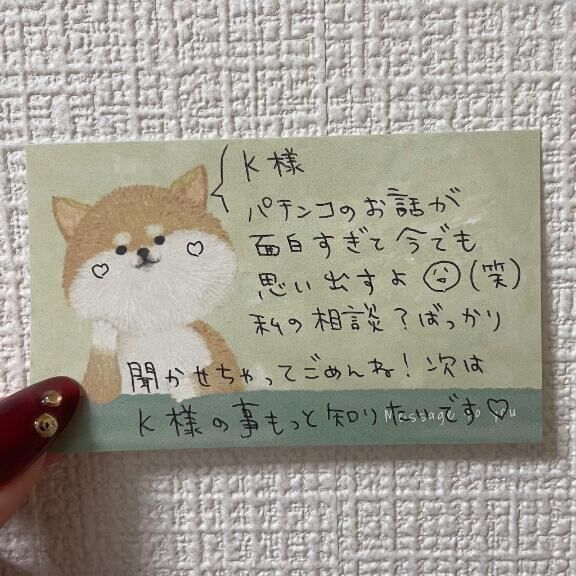 K様
パチンコのお話が
面白すぎて今でも
思い出すよ (笑)
私の相談？ばっかり
聞かせちゃってごめんね！次は
K様の事もっと知りたいです♡
Message to you